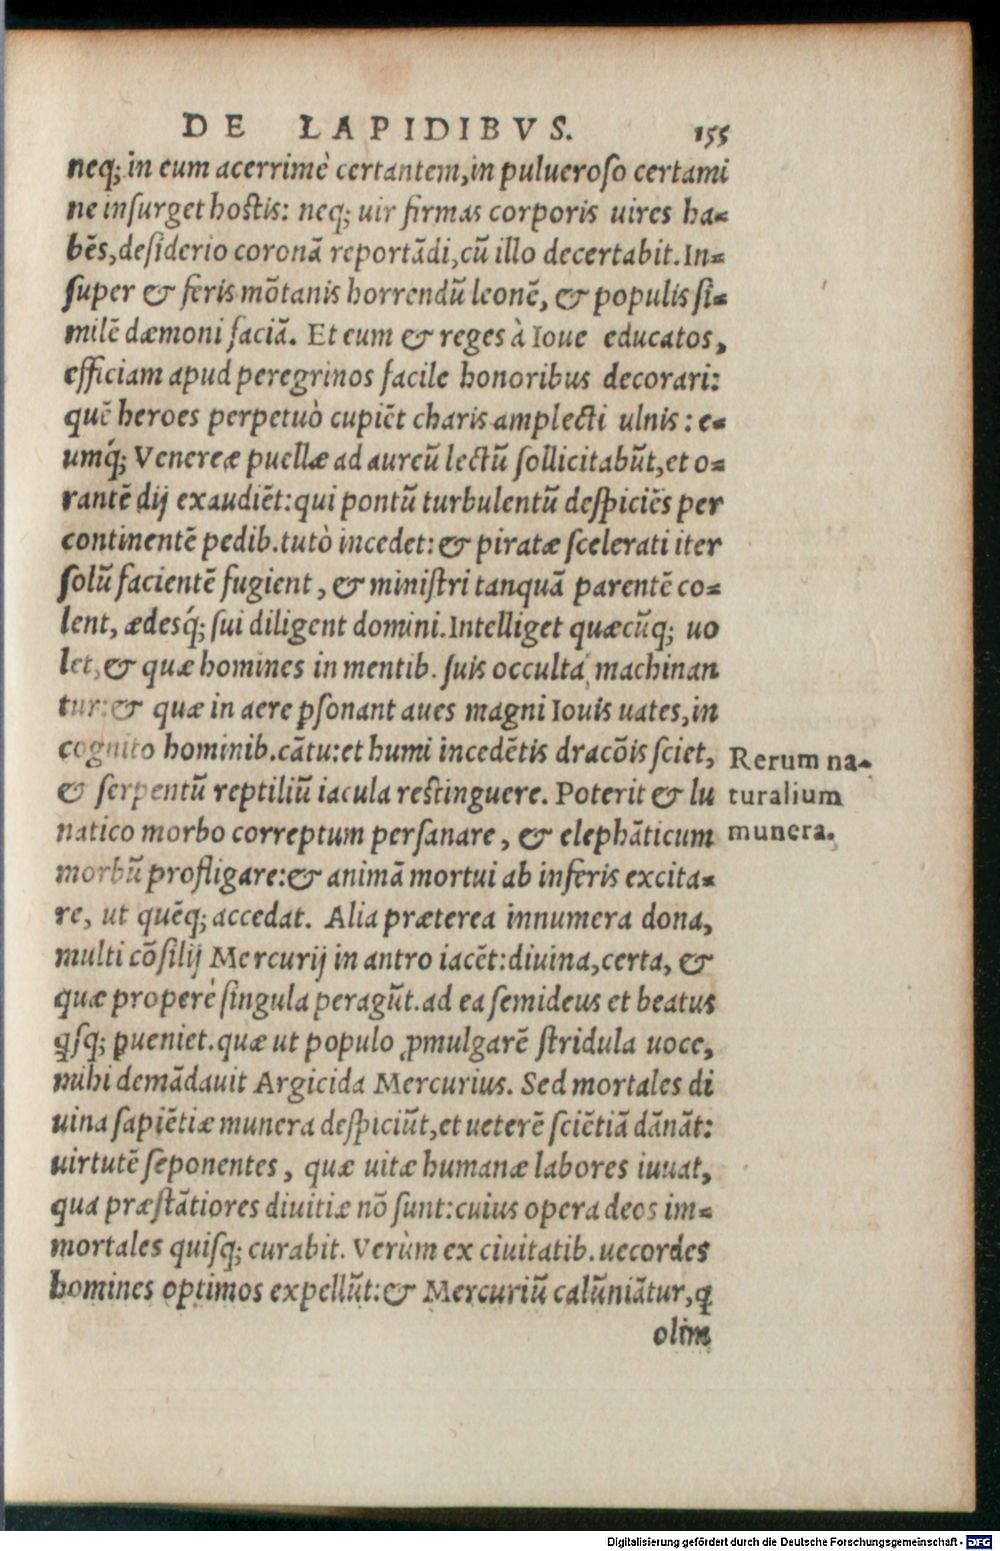 DE LAPIDIBVS. 155
neq; in eum acerrimè certantem, in pulueroso certami
ne insurget hostis: neq; uir firmas corporis uires ha=
bēs, desiderio coronā reportādi, cū illo decertabit. In=
super & feris mōtanis horrendū leonē, & populis si=
milē dæmoni faciā. Et eum & reges à Ioue educatos,
efficiam apud peregrinos facile honoribus decorari:
quē heroes perpetuò cupiēt charis amplecti ulnis: e=
umq́; Venereæ puellæ ad aureū lectū sollicitabūt, et o=
rantē dij exaudiēt: qui pontū turbulentū despiciēs per
continentē pedib. tutò incedet: & piratæ scelerati iter
solū facientē fugient, & ministri tanquā parentē co=
lent, ædesq́; sui diligent domini. Intelliget quæcūq; uo
let, & quæ homines in mentib. suis occulta machinan
tur: & quæ in aere ꝑsonant aues magni Iouis uates, in
cognito hominib. cātu: et humi incedētis dracōis sciet,
& serpentū reptiliū iacula restinguere. Poterit & lu
natico morbo correptum persanare, & elephāticum
morbū profligare: & animā mortui ab inferis excita=
re, ut quēq; accedat. Alia præterea innumera dona,
multi cōsilij Mercurij in antro iacēt: diuina, certa, &
quæ properè singula peragūt. ad ea semideus et beatus
q̃sq; ꝑueniet. quæ ut populo ꝓmulgarē stridula uoce,
mihi demādauit Argicida Mercurius. Sed mortales di
uina sapiētiæ munera despiciūt, et ueterē sciētiā dānāt:
uirtutē seponentes, quæ uitæ humanæ labores iuuat,
qua præstātiores diuitiæ nō sunt: cuius opera deos im=
mortales quisq; curabit. Verùm ex ciuitatib. uecordes
homines optimos expellūt: & Mercuriū calūniātur, q̃
olim
Rerum na=
turalium
munera.
Digitalisierung gefördert durch die Deutsche Forschungsgemeinschaft - DFG